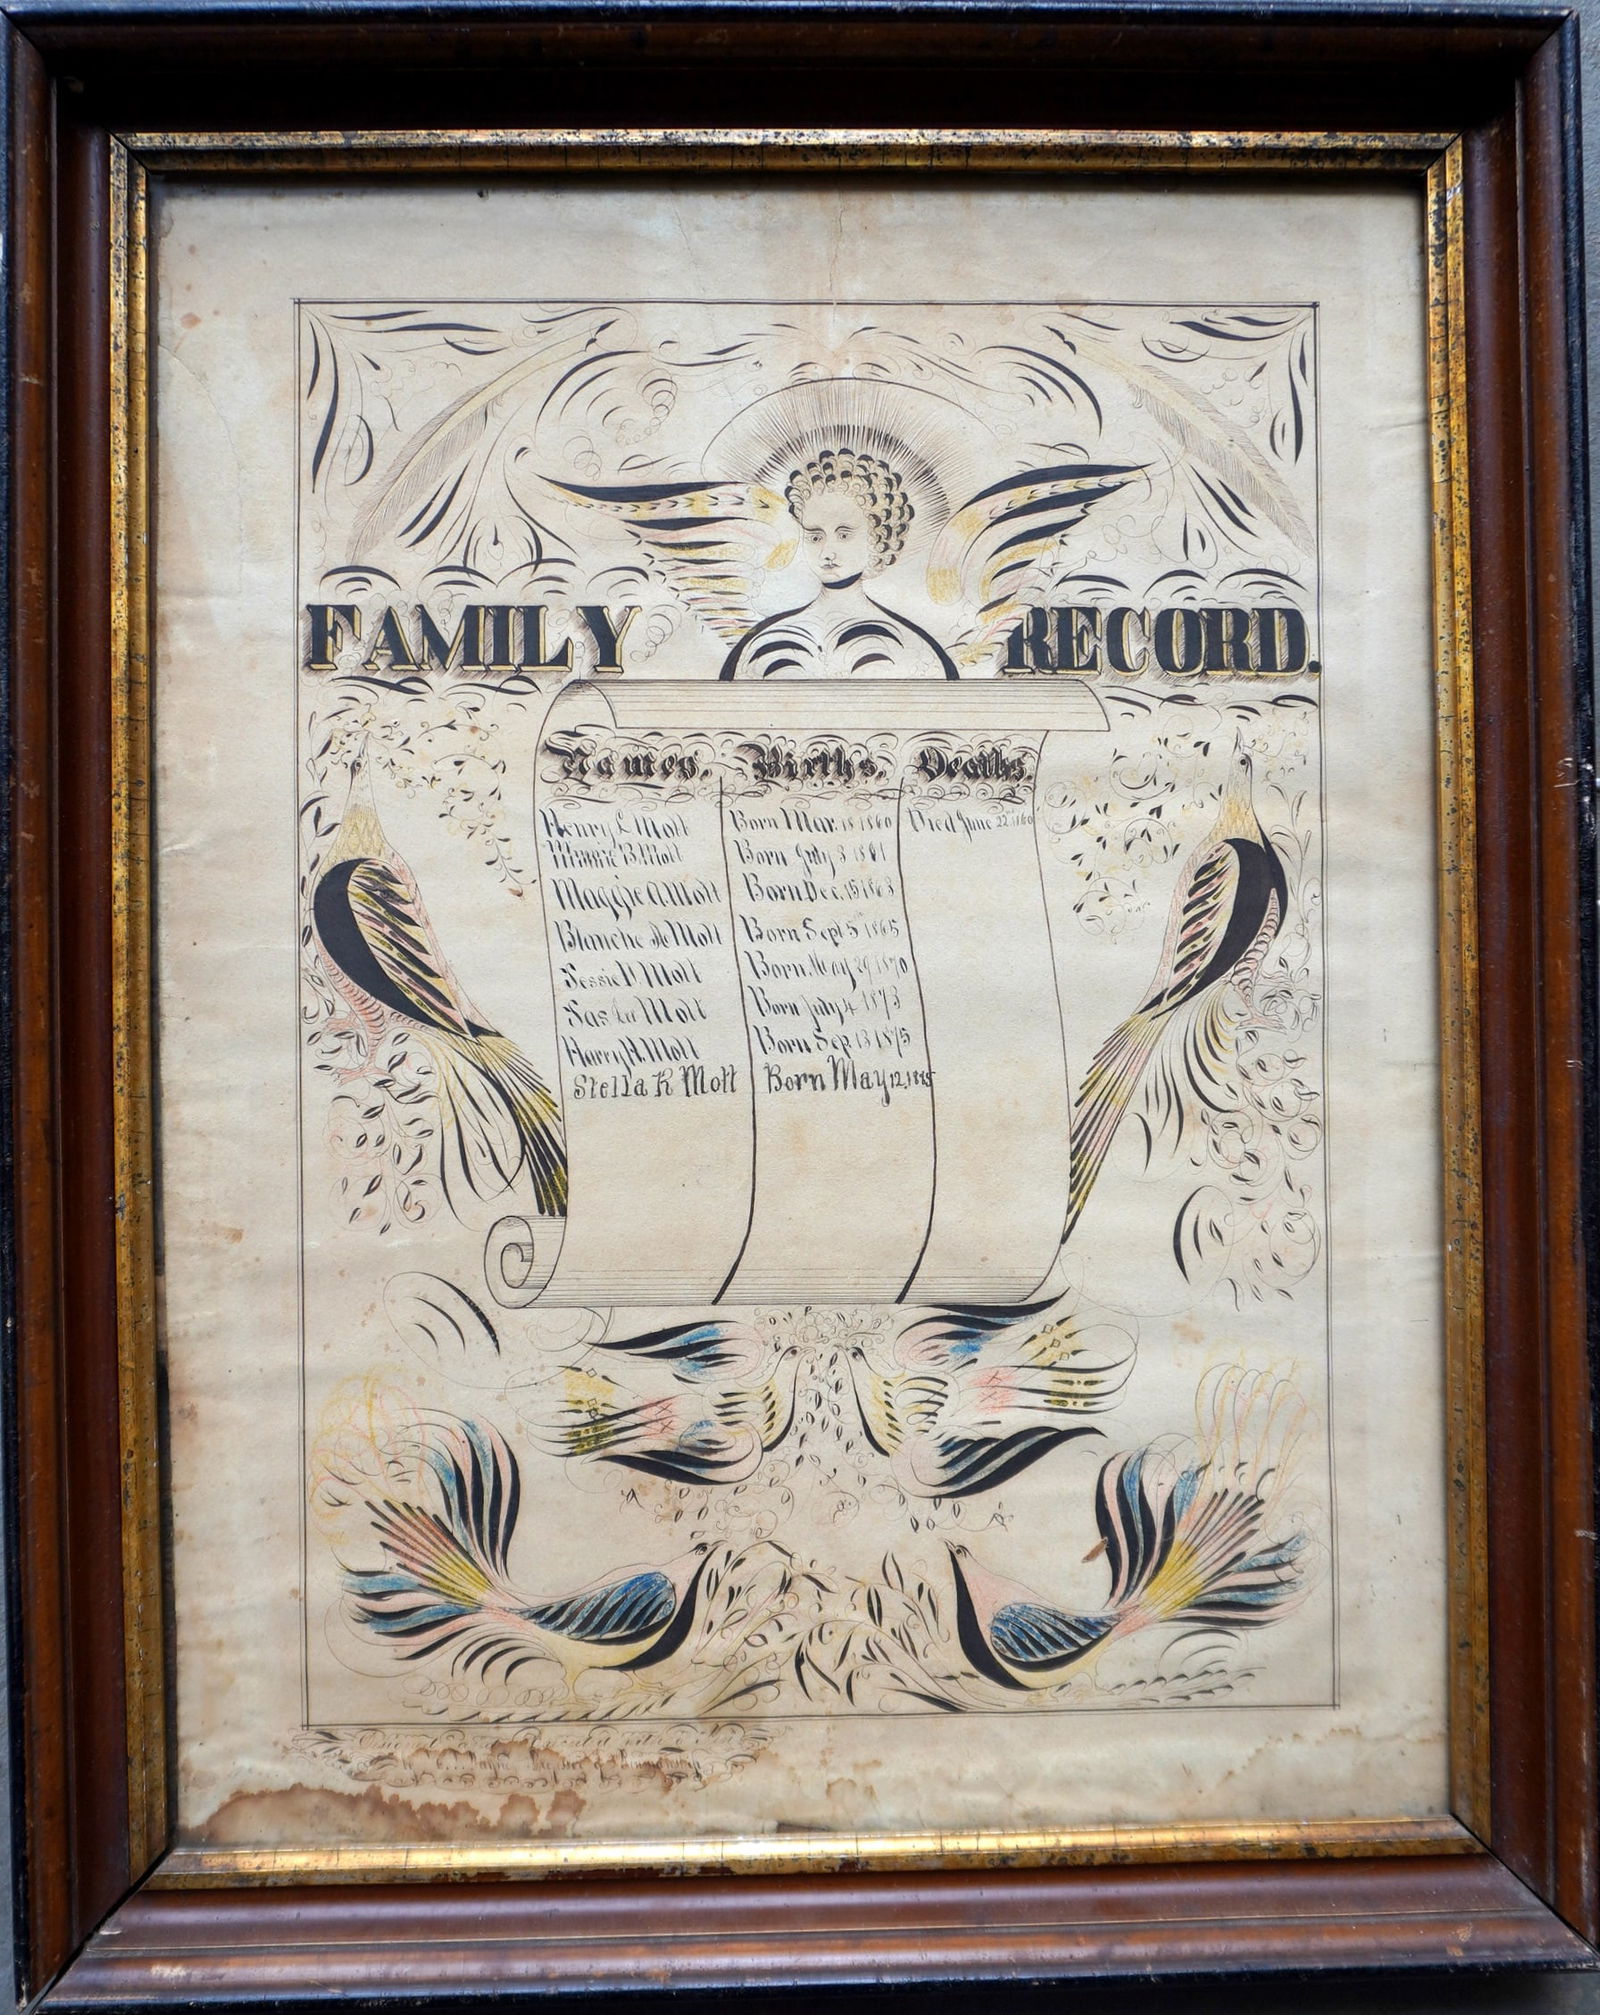 FAMILY RECORD.
Names. Births. Deaths.
Henry L Mott Born Mar. 18 1860 Died June 22nd 1860
Minnie B. Mott Born July 8 1861
Maggie A. Mott Born Dec. 15 1863
Blanche Mott Born Sept 5th 1865
Jessie Mott Born May 29 1870
Mott Born July 4 1873
Harry H. Mott Born Sep. 13 1875
Stella K Mott Born May 12, 1885
Executed with a Pen
of Penmanship